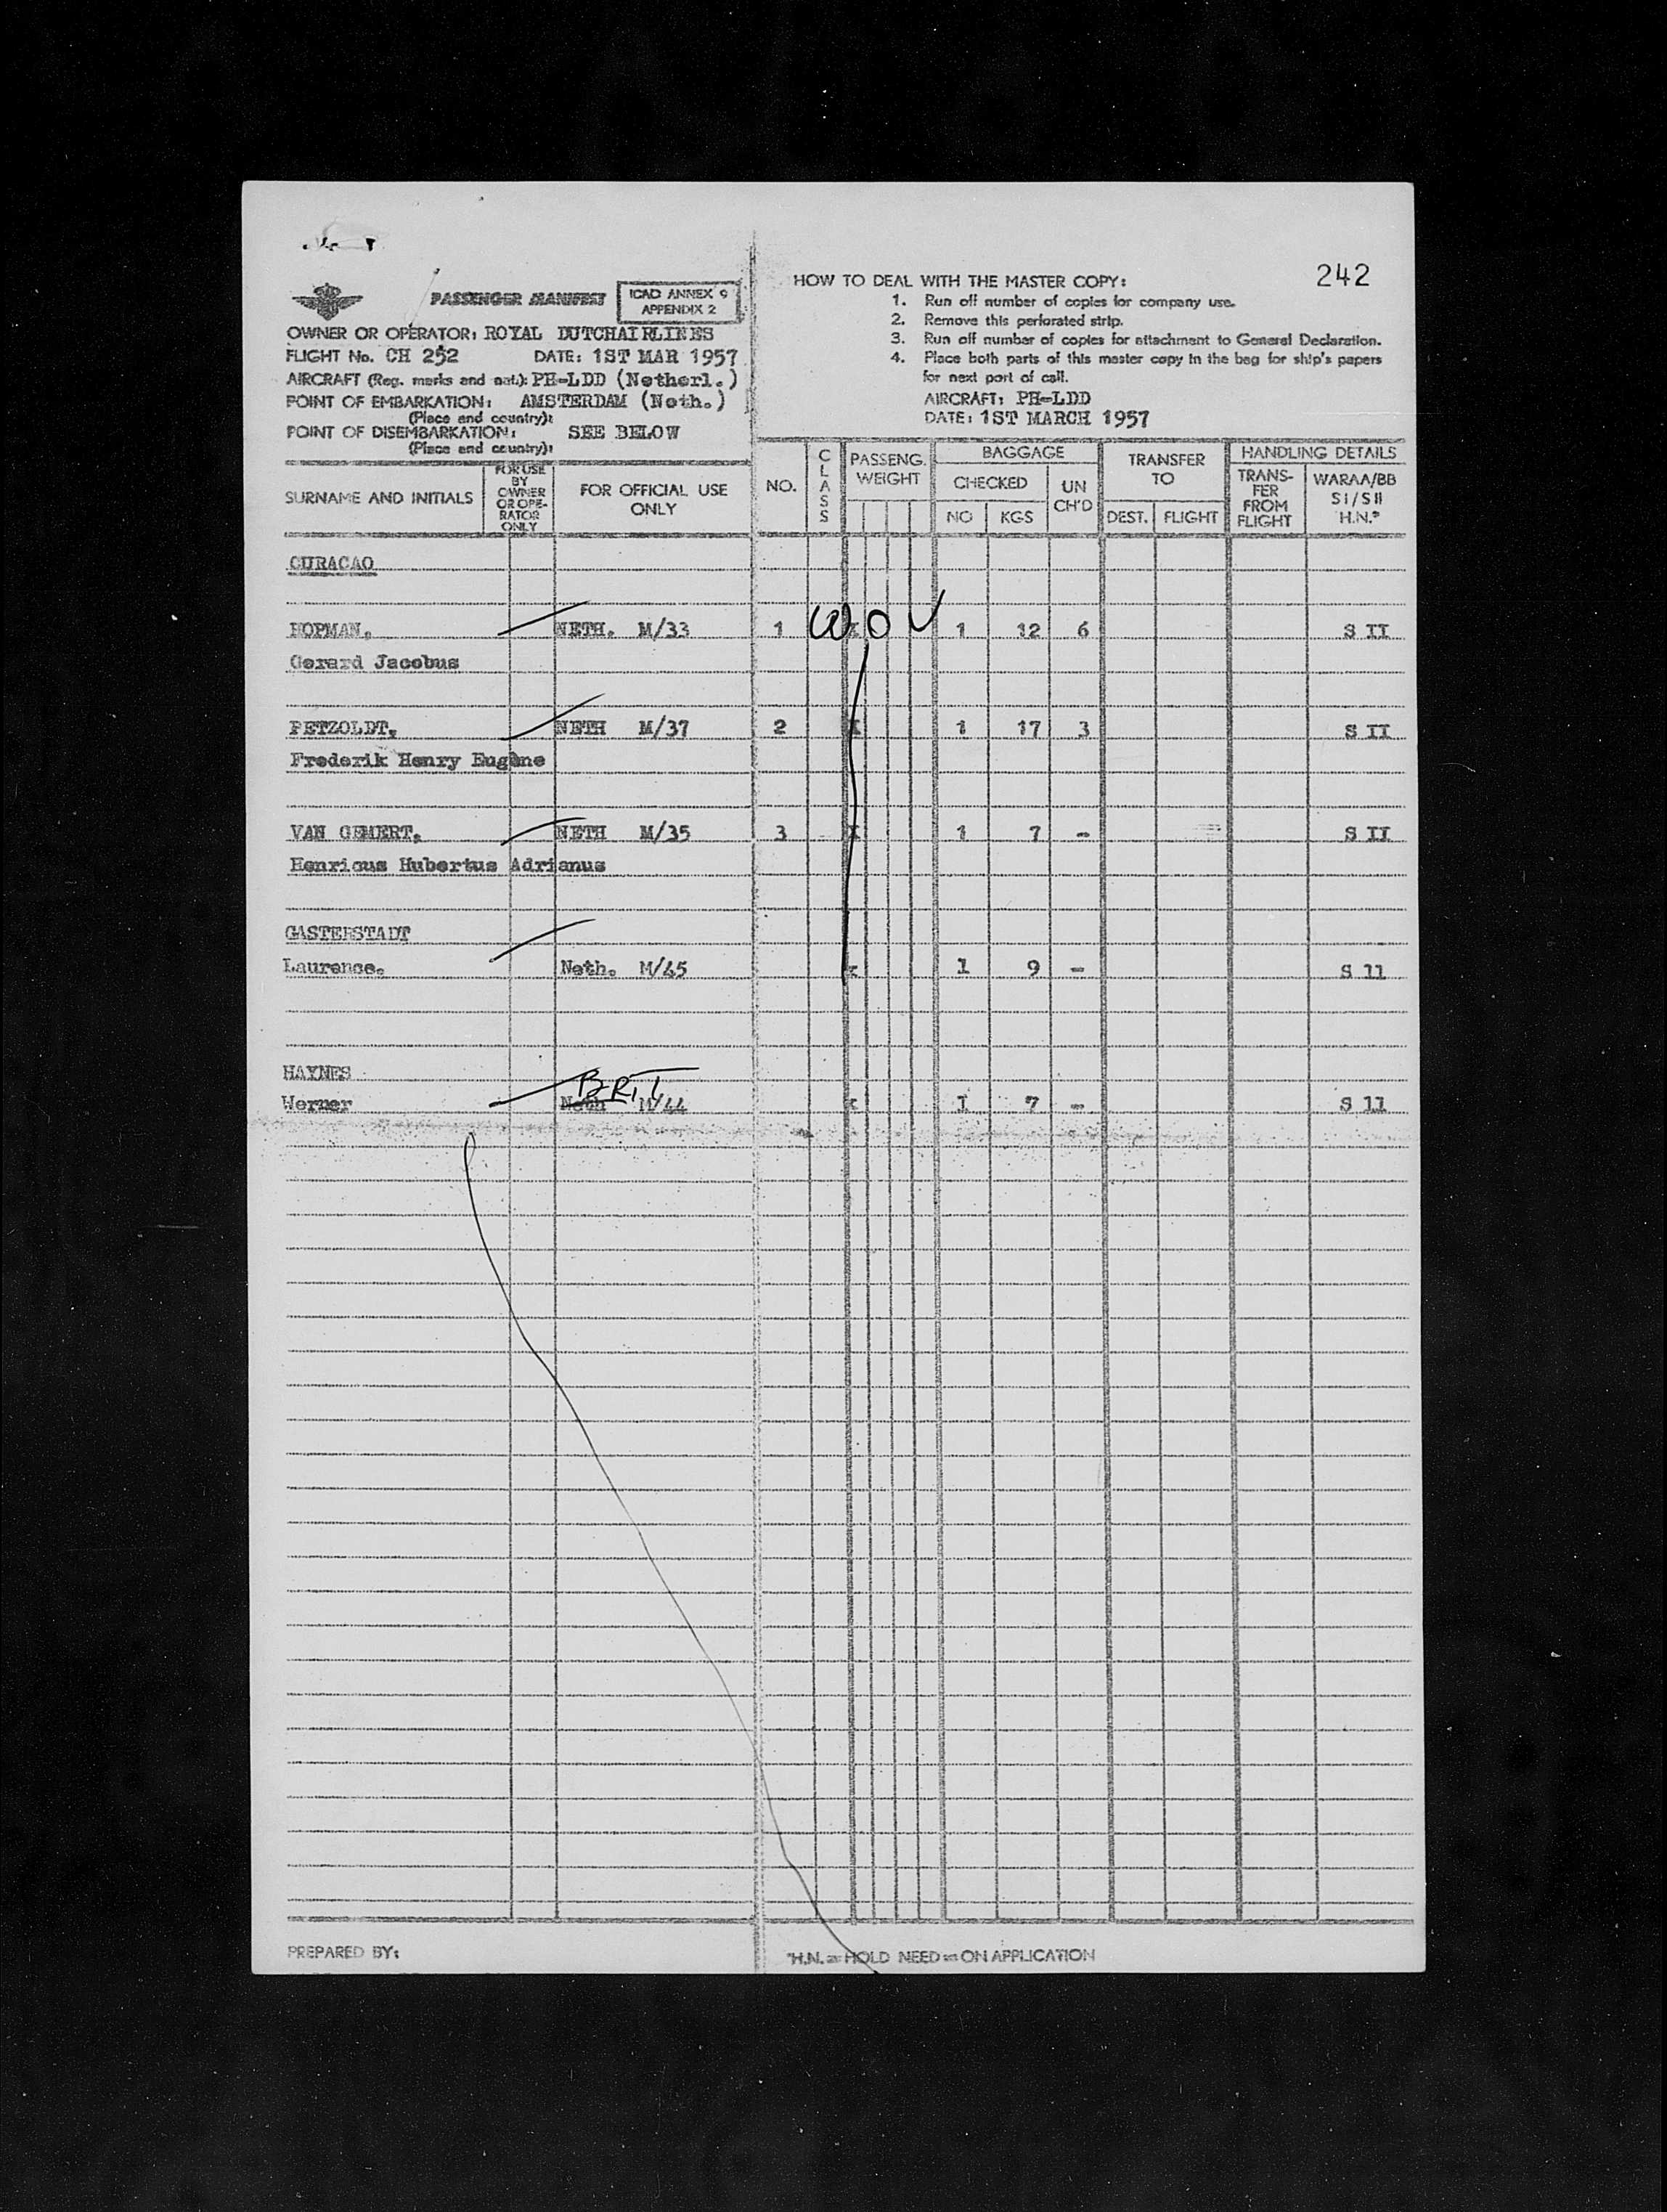 242
PASSENGER MANIFEST
ICAO ANNEX 9
APPENDIX 2
OWNER OR OPERATOR: ROYAL DUTCHAIRLINES
FLIGHT No. CH 252 DATE: 1ST MAR 1957
AIRCRAFT (Reg. marks and nat.): PH-LDD (Netherl.)
POINT OF EMBARKATION: AMSTERDAM (Neth.)
(Place and country):
POINT OF DISEMBARKATION: SEE BELOW
(Place and country):
HOW TO DEAL WITH THE MASTER COPY:
1. Run off number of copies for company use.
2. Remove this perforated strip.
3. Run off number of copies for attachment to General Declaration.
4. Place both parts of this master copy in the bag for ship's papers
for next port of call.
AIRCRAFT: PH-LDD
DATE: 1ST MARCH 1957
SURNAME AND INITIALS
FOR USE
BY
OWNER
OR OPE-
RATOR
ONLY
FOR OFFICIAL USE
ONLY
NO.
CLASS
PASSENG.
WEIGHT
BAGGAGE
CHECKED
NO KGS
UN
CH'D
TRANSFER
TO
DEST. FLIGHT
HANDLING DETAILS
TRANS-
FER
FROM
FLIGHT
WARAA/BB
SI/SII
H.N.*
CURACAO
HOPMAN, NETH. M/33 1 1 12 6 S II
Gerard Jacobus
PETZOLDT, NETH M/37 2 1 17 3 S II
Frederik Henry Eugène
VAN GEMERT, NETH M/35 3 1 7 - S II
Henricus Hubertus Adrianus
GASTERSTADT
Laurence. Neth. M/45 x 1 9 - S 11
HAYNES BRIT
Werner Neth M/44 x 1 7 - S 11
PREPARED BY:
*H.N. = HOLD NEED = ON APPLICATION